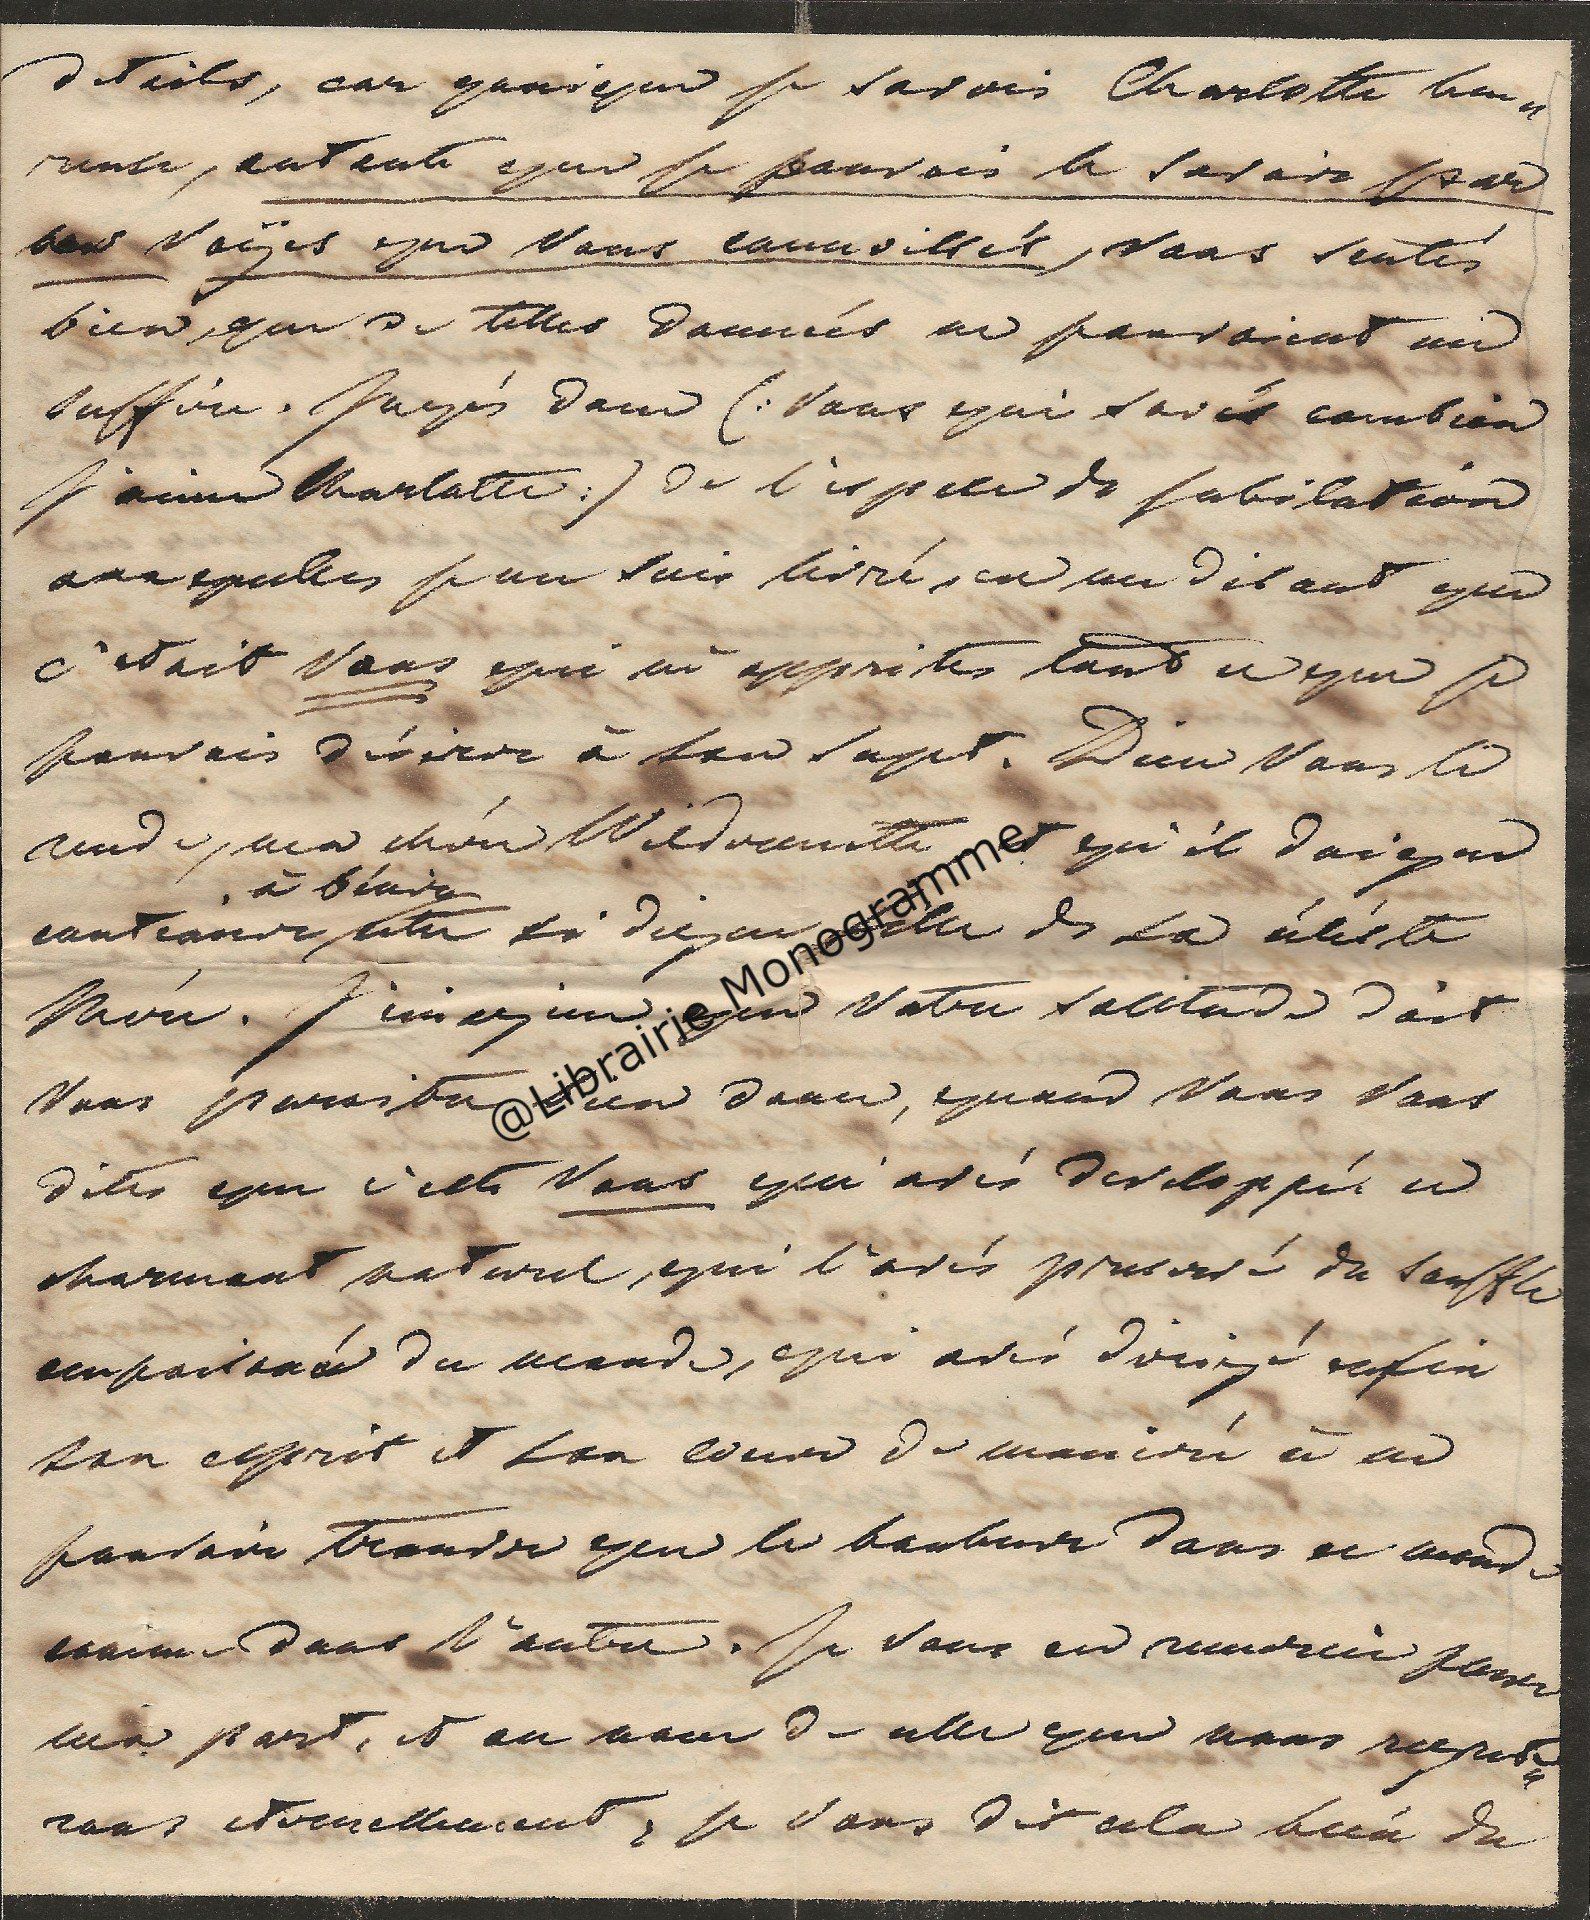 détails, car quoique je savois Charlotte heu„
reuse, autant que je pouvois le savoir par
les voÿes que vous connoissés, vous sentés
bien que de telles données ne pouvoient me
suffire. Jugés donc (: vous qui savés combien
j'aime Charlotte :) de l'espece de jubilation
auxquelles je me suis livré, en me disant que
c'etoit vous qui m'apprites tout ce que je
pouvois désirer à son sujet. Dieu vous le
rende, ma chère Wildermette et qu'il daigne
continuer à bénir cette si digne fille de sa céleste
Mère. J'imagine que votre solitude doit
vous paroitre bien douce, quand vous vous
dites que c'este vous qui avés developpée ce
charmant naturel, qui l'avés preservé du souffle
empoisonné du monde, qui avés dirigé enfin
son esprit et son coeur de manière à ne
pouvoir trouver que le bonheur dans ce monde
comme dans l'autre. Je vous en remercie pour
ma part, et au nom de celle que nous regret„
rons eternellement, je vous dit cela bien du
@Librairie Monogramme